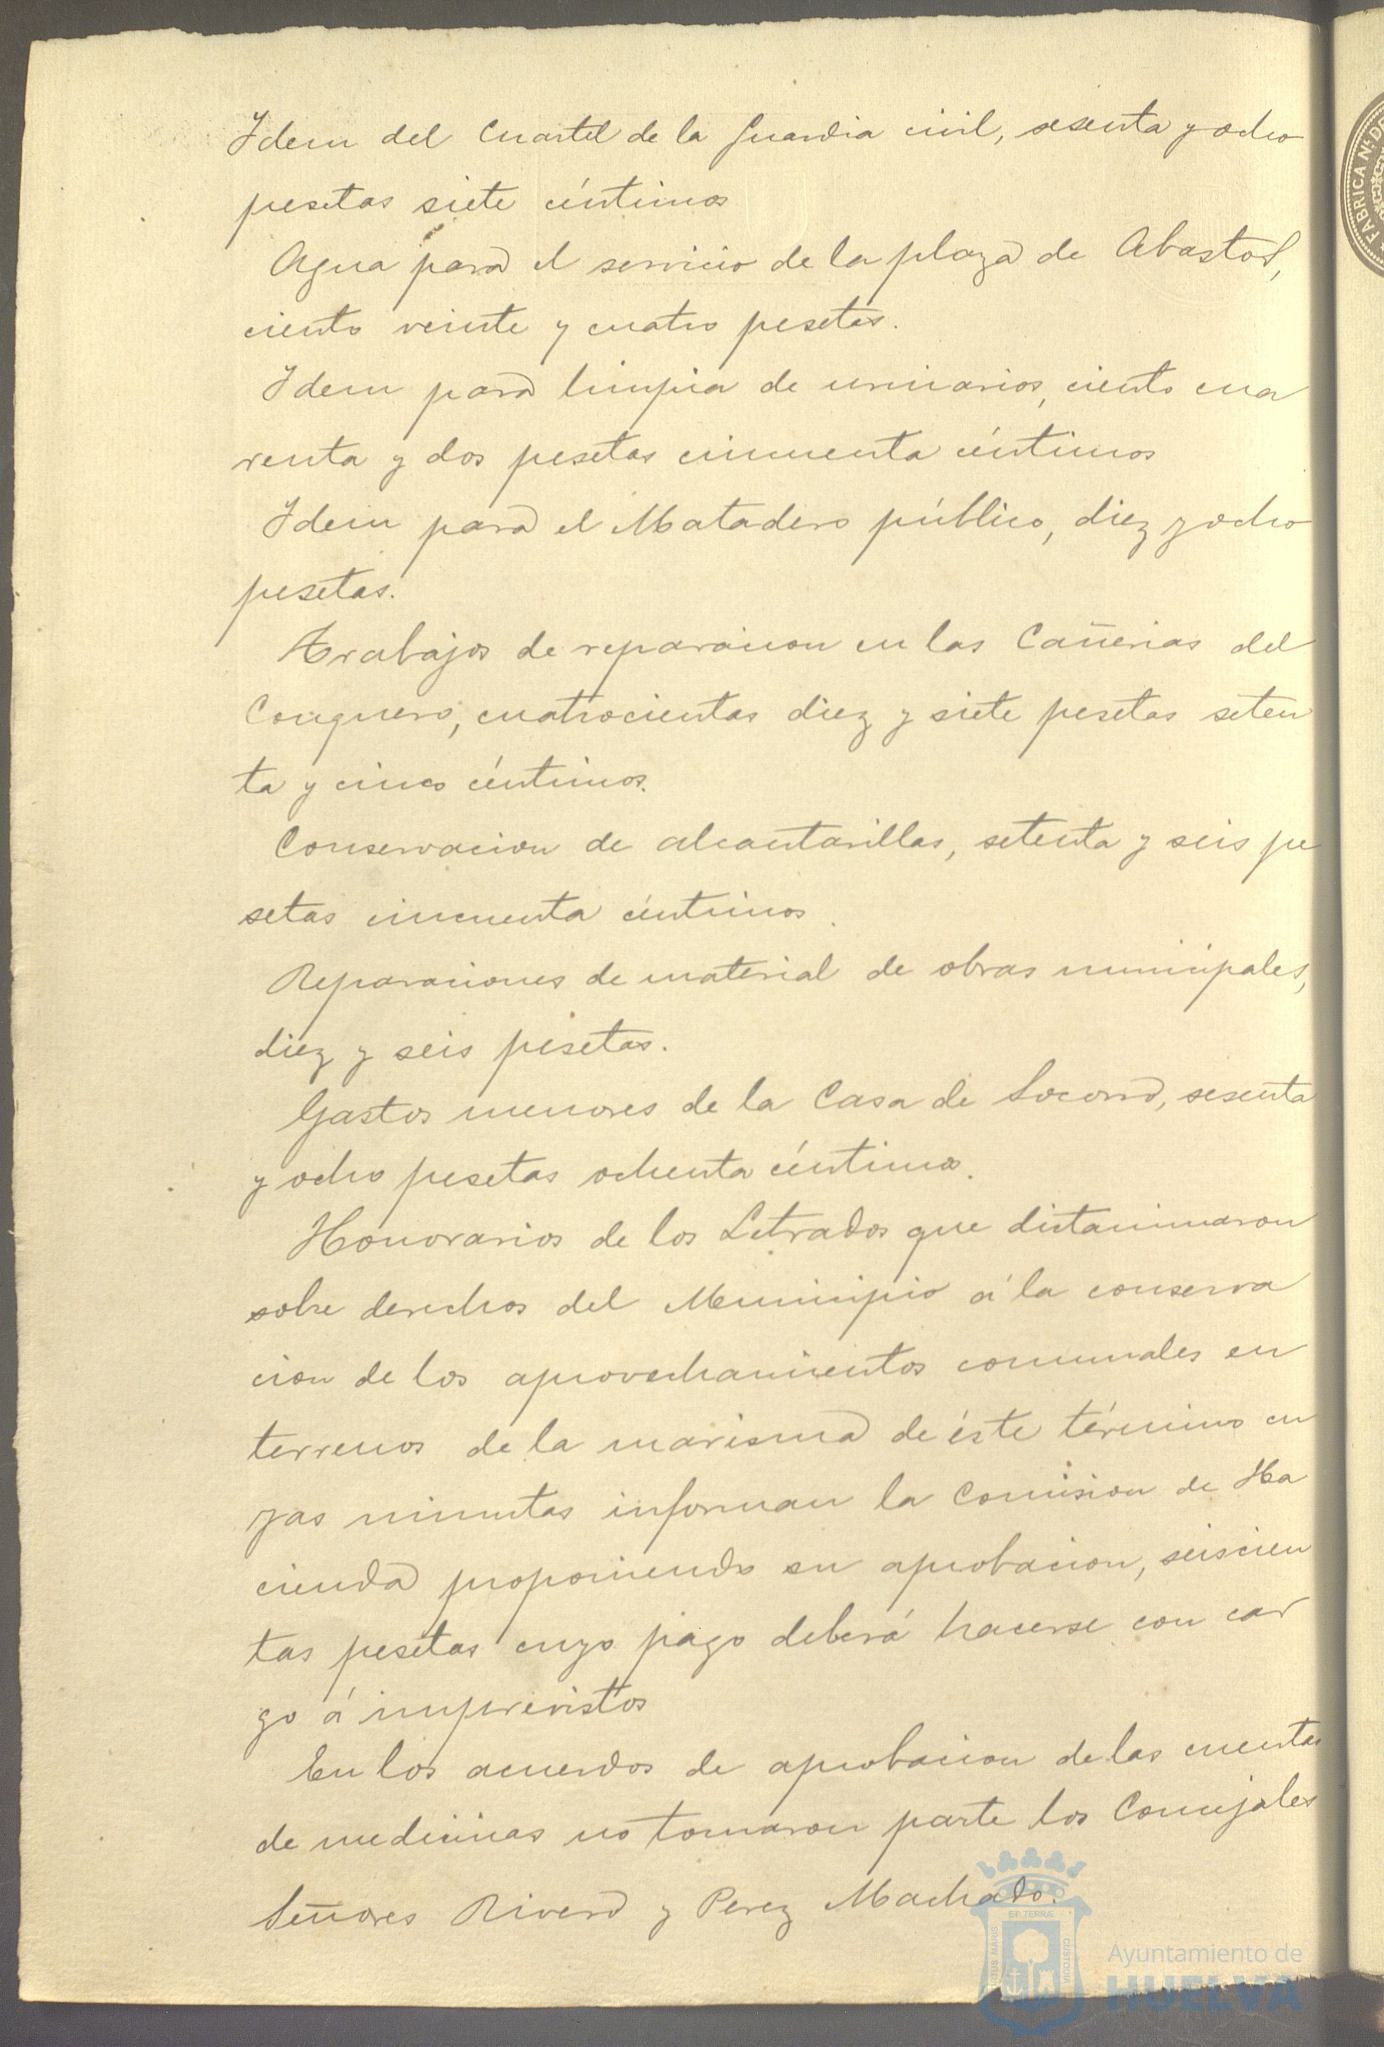 Idem del Cuartel de la Guardia civil, sesenta y ocho
pesetas siete céntimos
Agua para el servicio de la plaza de Abastos,
ciento veinte y cuatro pesetas.
Idem para limpia de urinarios, ciento cua
renta y dos pesetas cincuenta céntimos
Idem para el Matadero público, diez y ocho
pesetas.
Trabajos de reparacion en las Cañerias del
Conquero, cuatrocientas diez y siete pesetas seten
ta y cinco céntimos.
Conservacion de alcantarillas, setenta y seis pe
setas cincuenta céntimos.
Reparaciones de material de obras municipales,
diez y seis pesetas.
Gastos menores de la Casa de Socorro, sesenta
y ocho pesetas ochenta céntimos.
Honorarios de los Letrados que dictaminaron
sobre derechos del Municipio á la conserva
cion de los aprovechamientos comunales en
terrenos de la marisma de éste término cu
yas minutas informan la Comision de Ha
cienda proponiendo su aprobacion, seiscien
tas pesetas cuyo pago deberá hacerse con car
go á imprevistos
En los acuerdos de aprobacion de las cuentas
de medicinas no tomaron parte los Concejales
Señores Rivero y Perez Machado.
Ayuntamiento de
HUELVA
FABRICA N